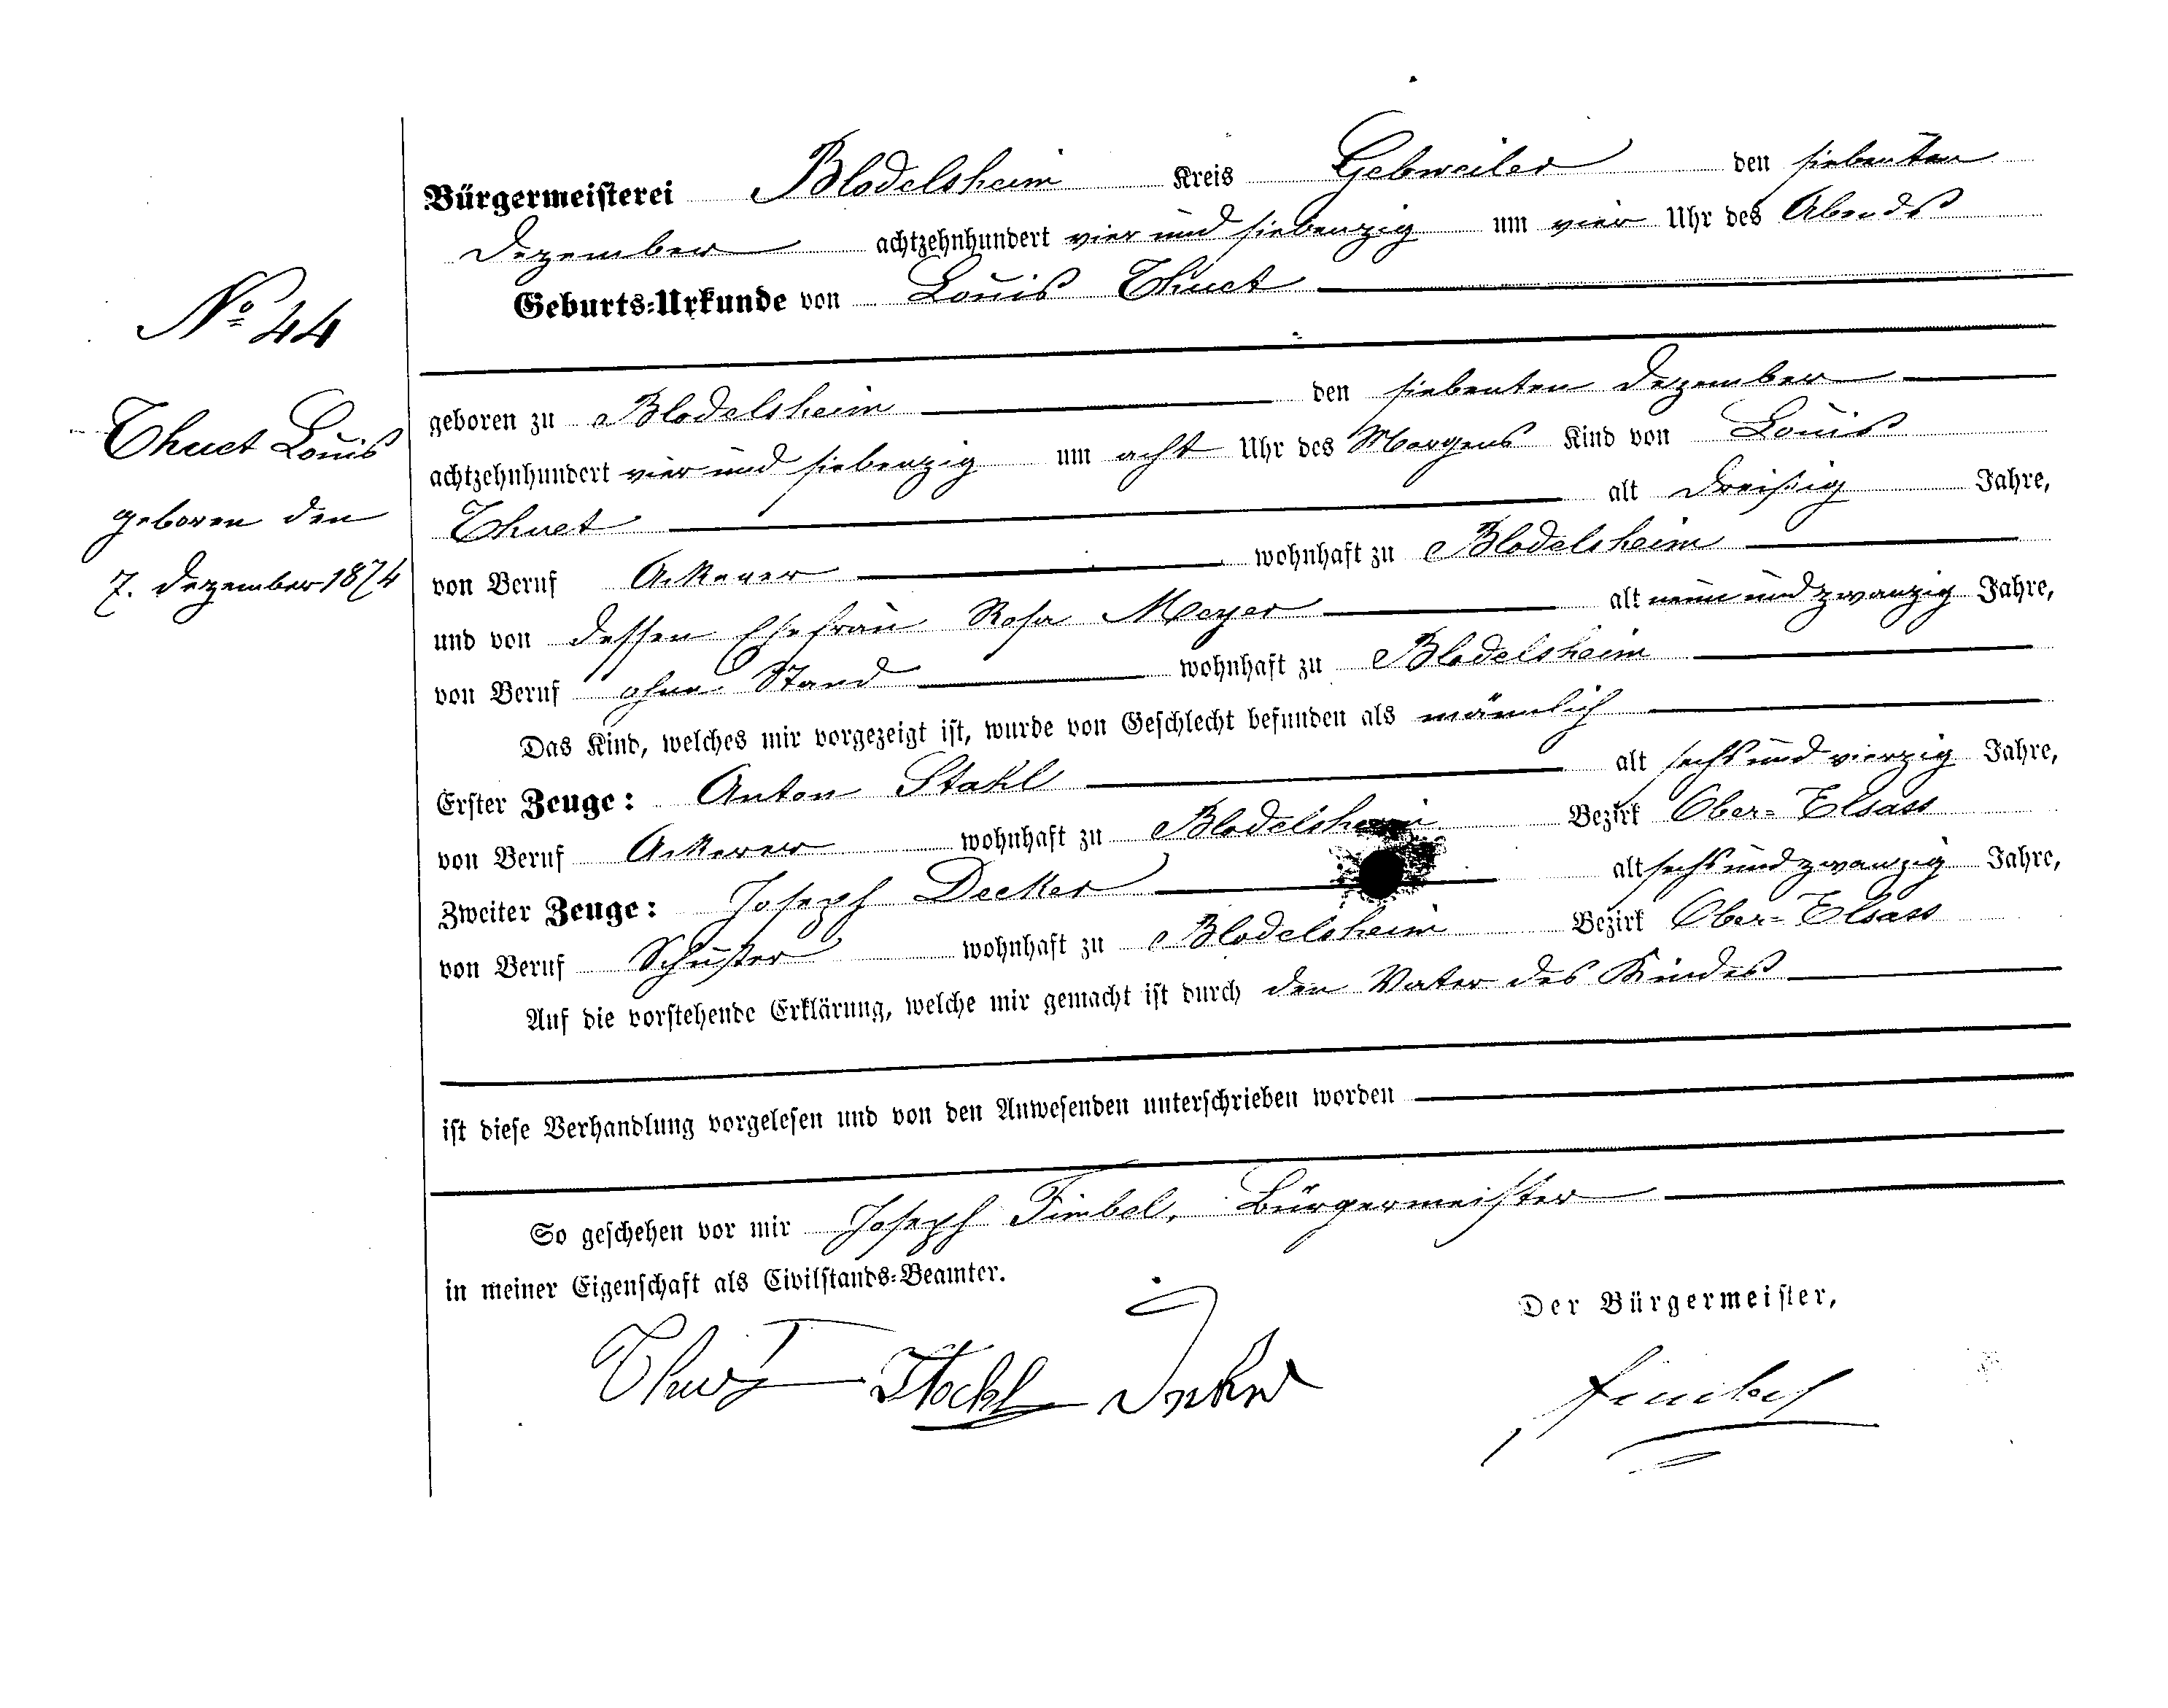 Bürgermeisterei Blodelsheim Kreis Gebweiler den siebenten
Dezember achtzehnhundert vier und siebenzig um vier Uhr des Abends
Geburts-Urkunde von Louis Thuet
No 44
Thuet Louis
geboren den
7. Dezember 1874
geboren zu Blodelsheim den siebenten Dezember
achtzehnhundert vier und siebenzig um acht Uhr des Morgens Kind von Louis
Thuet alt dreißig Jahre,
von Beruf Ackerer wohnhaft zu Blodelsheim
und von dessen Ehefrau Rosa Meyer alt neun und zwanzig Jahre,
von Beruf ohne Stand wohnhaft zu Blodelsheim
Das Kind, welches mir vorgezeigt ist, wurde von Geschlecht befunden als männlich
Erster Zeuge: Anton Stahl alt sechs und vierzig Jahre,
von Beruf Ackerer wohnhaft zu Blodelsheim Bezirk Ober-Elsass
Zweiter Zeuge: Joseph Decker alt sechs und zwanzig Jahre,
von Beruf Schuster wohnhaft zu Blodelsheim Bezirk Ober-Elsass
Auf die vorstehende Erklärung, welche mir gemacht ist durch den Vater des Kindes
ist diese Verhandlung vorgelesen und von den Anwesenden unterschrieben worden
So geschehen vor mir Joseph Fimbel, Bürgermeister
in meiner Eigenschaft als Civilstands-Beamter.
Der Bürgermeister,
Thuet Stahl Fimbel